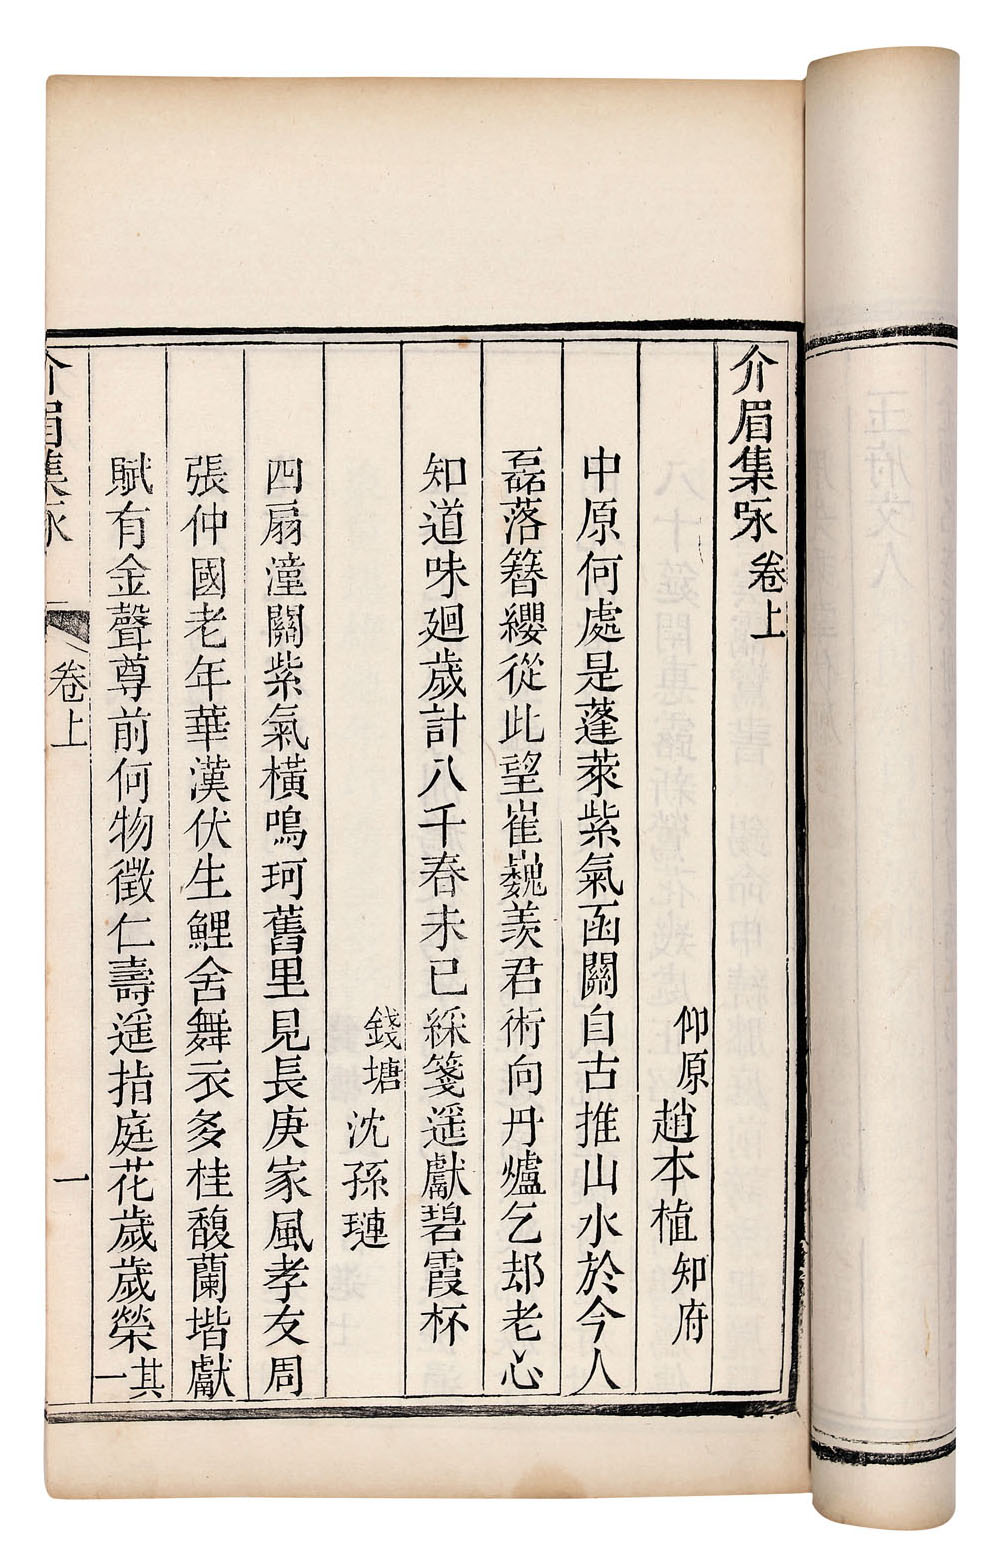 介眉集咏 卷上
仰原趙本植知府
中原何處是蓬萊紫氣函關自古推山水於今人
磊落簪纓從此望崔巍羨君術向丹爐乞却老心
知道味廻歲計八千春未已綵箋遥獻碧霞杯
錢塘沈孫璉
四扇潼關紫氣橫鳴珂舊里見長庚家風孝友周
張仲國老年華漢伏生鯉舍舞衣多桂馥蘭堦獻
賦有金聲尊前何物徵仁壽遥指庭花歲歲榮其一
介眉集咏 卷上 一